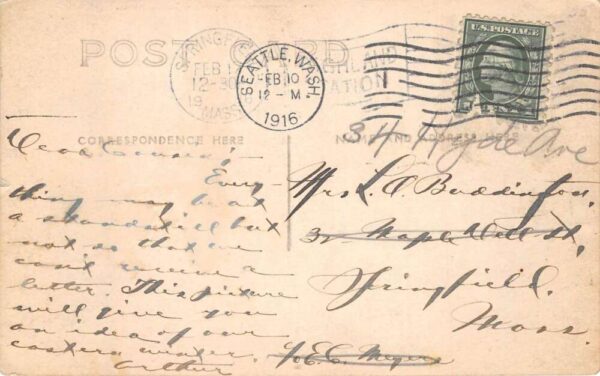 POST CARD
SPRINGF
FEB 1
12-30
19
MASS.
SEATTLE, WASH.
FEB 10
12 - M
1916
HIGHLAND
STATION
U.S. POSTAGE
CORRESPONDENCE HERE
NAME AND ADDRESS HERE
34 Hyde Ave
Dear Cousin:
Every-
thing may be at
a standstill but
not so that we
can't receive a
letter. This picture
will give you
an idea of our
eastern winter.
Arthur
Mrs. L. A. Buddington,
Maple St.,
Springfield,
Mass.
c/o E. C. Meyers